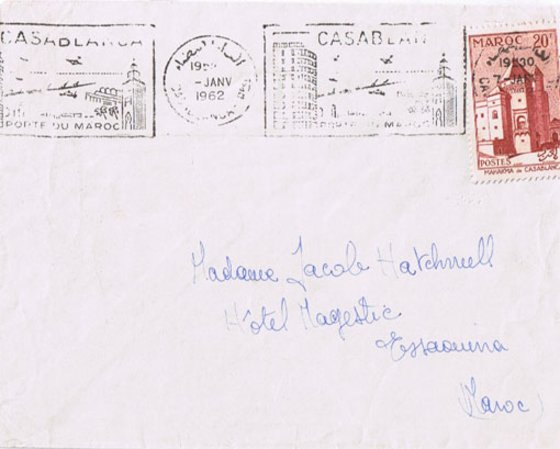 CASABLANCA
PORTE DU MAROC
19
-JANV
1962
CASABLAN
MAROC 20F
19H30
7-JANV
POSTES
MAHAKMA de CASABLANCA
Madame Jacole Hatchwell
Hôtel Magestic
Essaouira
(Maroc)